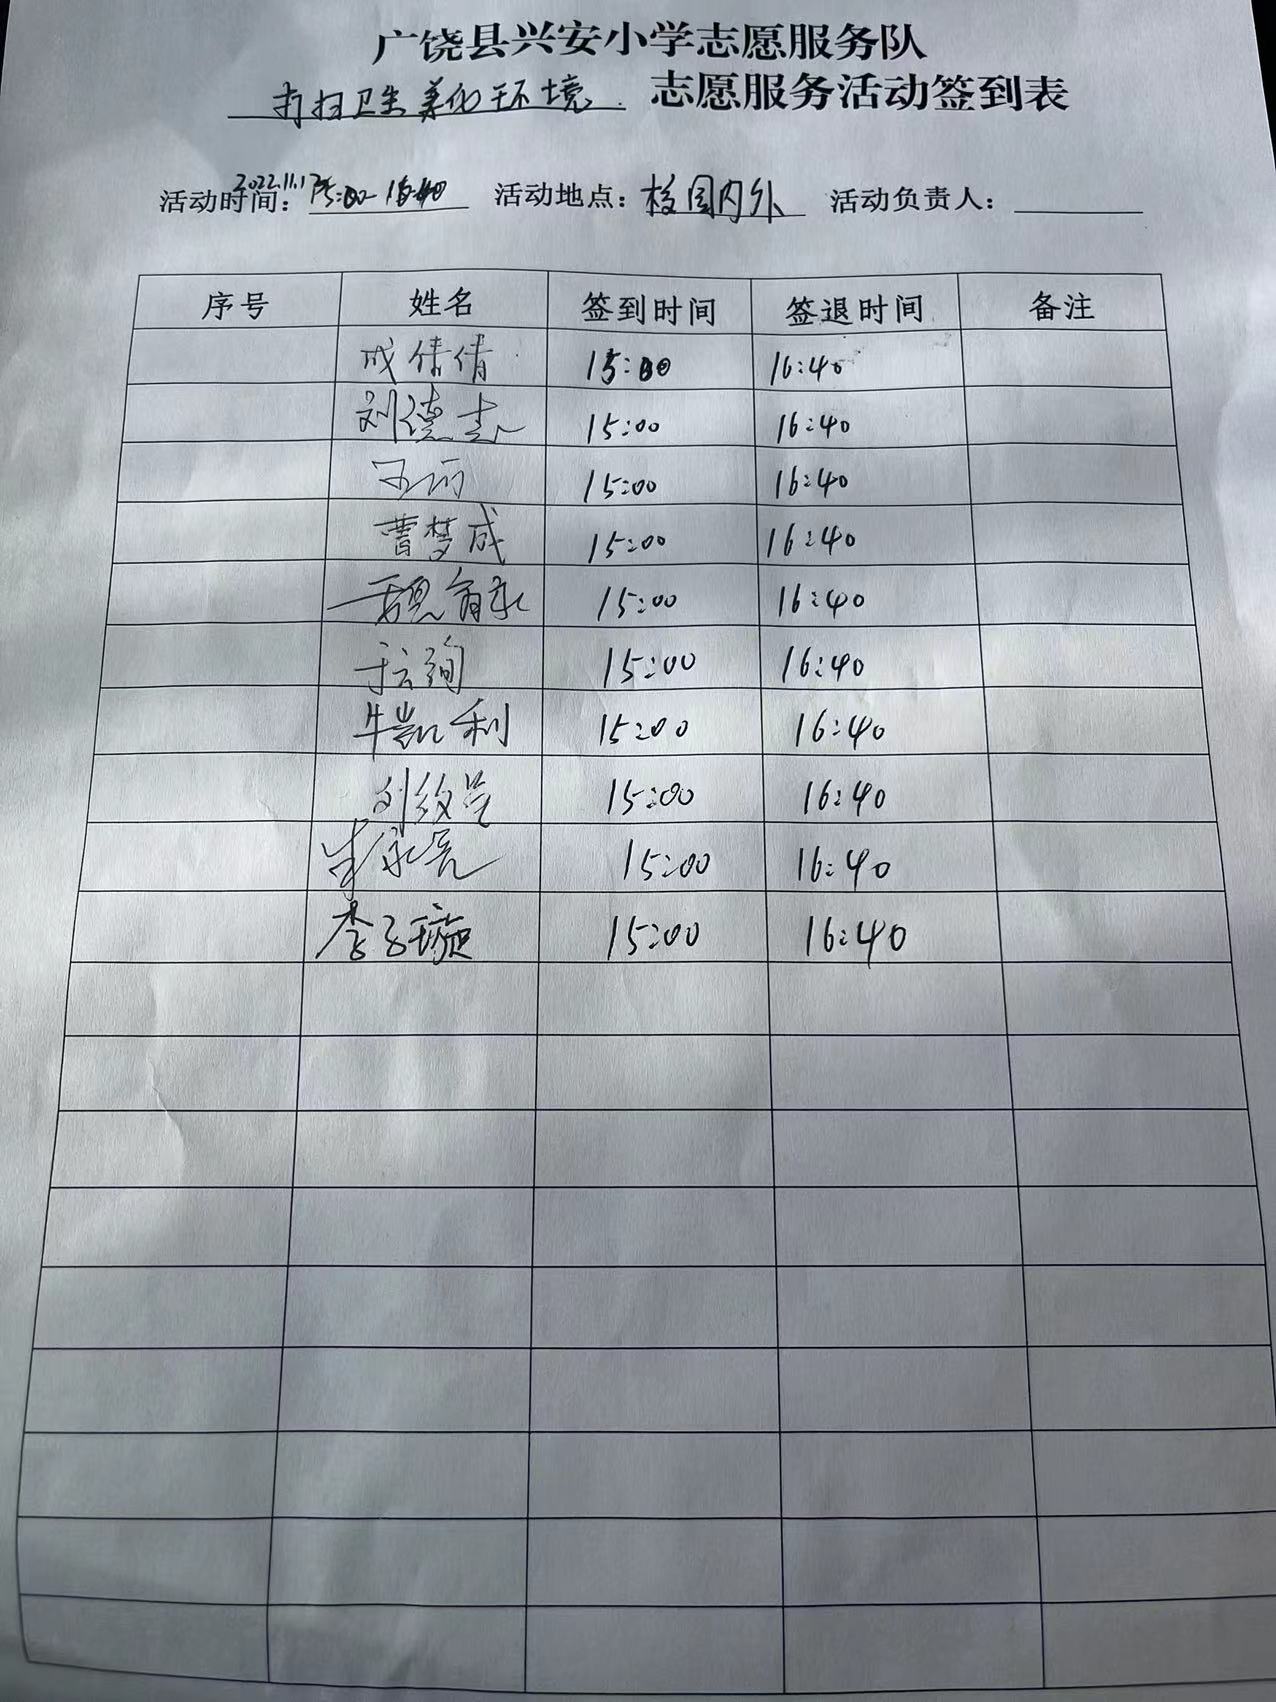 广饶县兴安小学志愿服务队
打扫卫生 美化环境 志愿服务活动签到表
活动时间：2022.11.17 15:00-16:40 活动地点：校园内外 活动负责人：
序号 姓名 签到时间 签退时间 备注
成倩倩 15:00 16:40
刘德志 15:00 16:40
15:00 16:40
曹梦成 15:00 16:40
15:00 16:40
15:00 16:40
牛凯利 15:00 16:40
15:00 16:40
15:00 16:40
李子璇 15:00 16:40